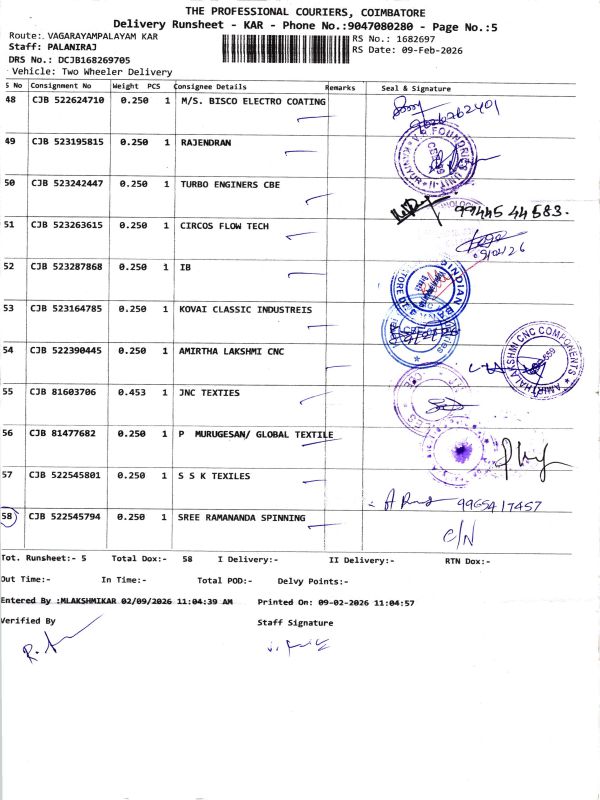 THE PROFESSIONAL COURIERS, COIMBATORE
Delivery Runsheet - KAR - Phone No.:9047080280 - Page No.:5
Route: VAGARAYAMPALAYAM KAR RS No.: 1682697
Staff: PALANIRAJ RS Date: 09-Feb-2026
DRS No.: DCJB168269705
Vehicle: Two Wheeler Delivery
S No Consignment No Weight PCS Consignee Details Remarks Seal & Signature
48 CJB 522624710 0.250 1 M/S. BISCO ELECTRO COATING
49 CJB 523195815 0.250 1 RAJENDRAN
50 CJB 523242447 0.250 1 TURBO ENGINERS CBE
99445 44583.
51 CJB 523263615 0.250 1 CIRCOS FLOW TECH
52 CJB 523287868 0.250 1 IB
INDIAN BANK
53 CJB 523164785 0.250 1 KOVAI CLASSIC INDUSTREIS
54 CJB 522390445 0.250 1 AMIRTHA LAKSHMI CNC
AMIRTHALAKSHMI CNC COMPONENTS
55 CJB 81603706 0.453 1 JNC TEXTIES
56 CJB 81477682 0.250 1 P MURUGESAN/ GLOBAL TEXTILE
57 CJB 522545801 0.250 1 S S K TEXILES
9965417457
58 CJB 522545794 0.250 1 SREE RAMANANDA SPINNING
C/N
Tot. Runsheet:- 5 Total Dox:- 58 I Delivery:- II Delivery:- RTN Dox:-
Out Time:- In Time:- Total POD:- Delvy Points:-
Entered By :MLAKSHMIKAR 02/09/2026 11:04:39 AM Printed On: 09-02-2026 11:04:57
Verified By Staff Signature